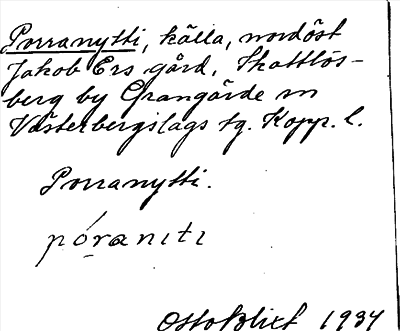 Porranytti, källa, nordöst
Jakob Ers gård, Skattlös-
berg by Grangärde sn
Västerbergslags tg. Kopp. l.
Porranytti.
póraniti
Otto Blixt 1934